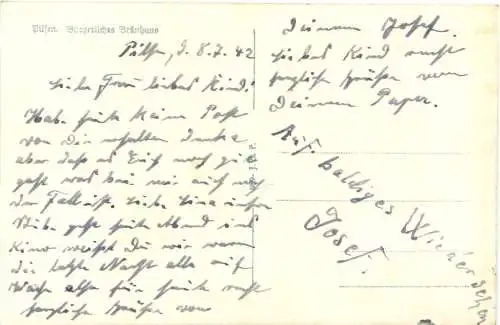 Pilsen. Bürgerliches Bräuhaus
Pilsen, d. 8.7.42
Liebe Frau liebes Kind!
Habe heute keine Post
von Dir erhalten denke
aber dass es Euch noch gut
geht was bei mir auch noch
der Fall ist. Liebe
Stube geht heute Abend ins
Kino weißt Du wir waren
die letzte Nacht alle auf
Wache also für heute recht
herzliche Grüße von
Deinem Josef.
Liebes Kind recht
herzliche Grüße von
Deinem Papa.
Auf baldiges Wiedersehen
Josef.